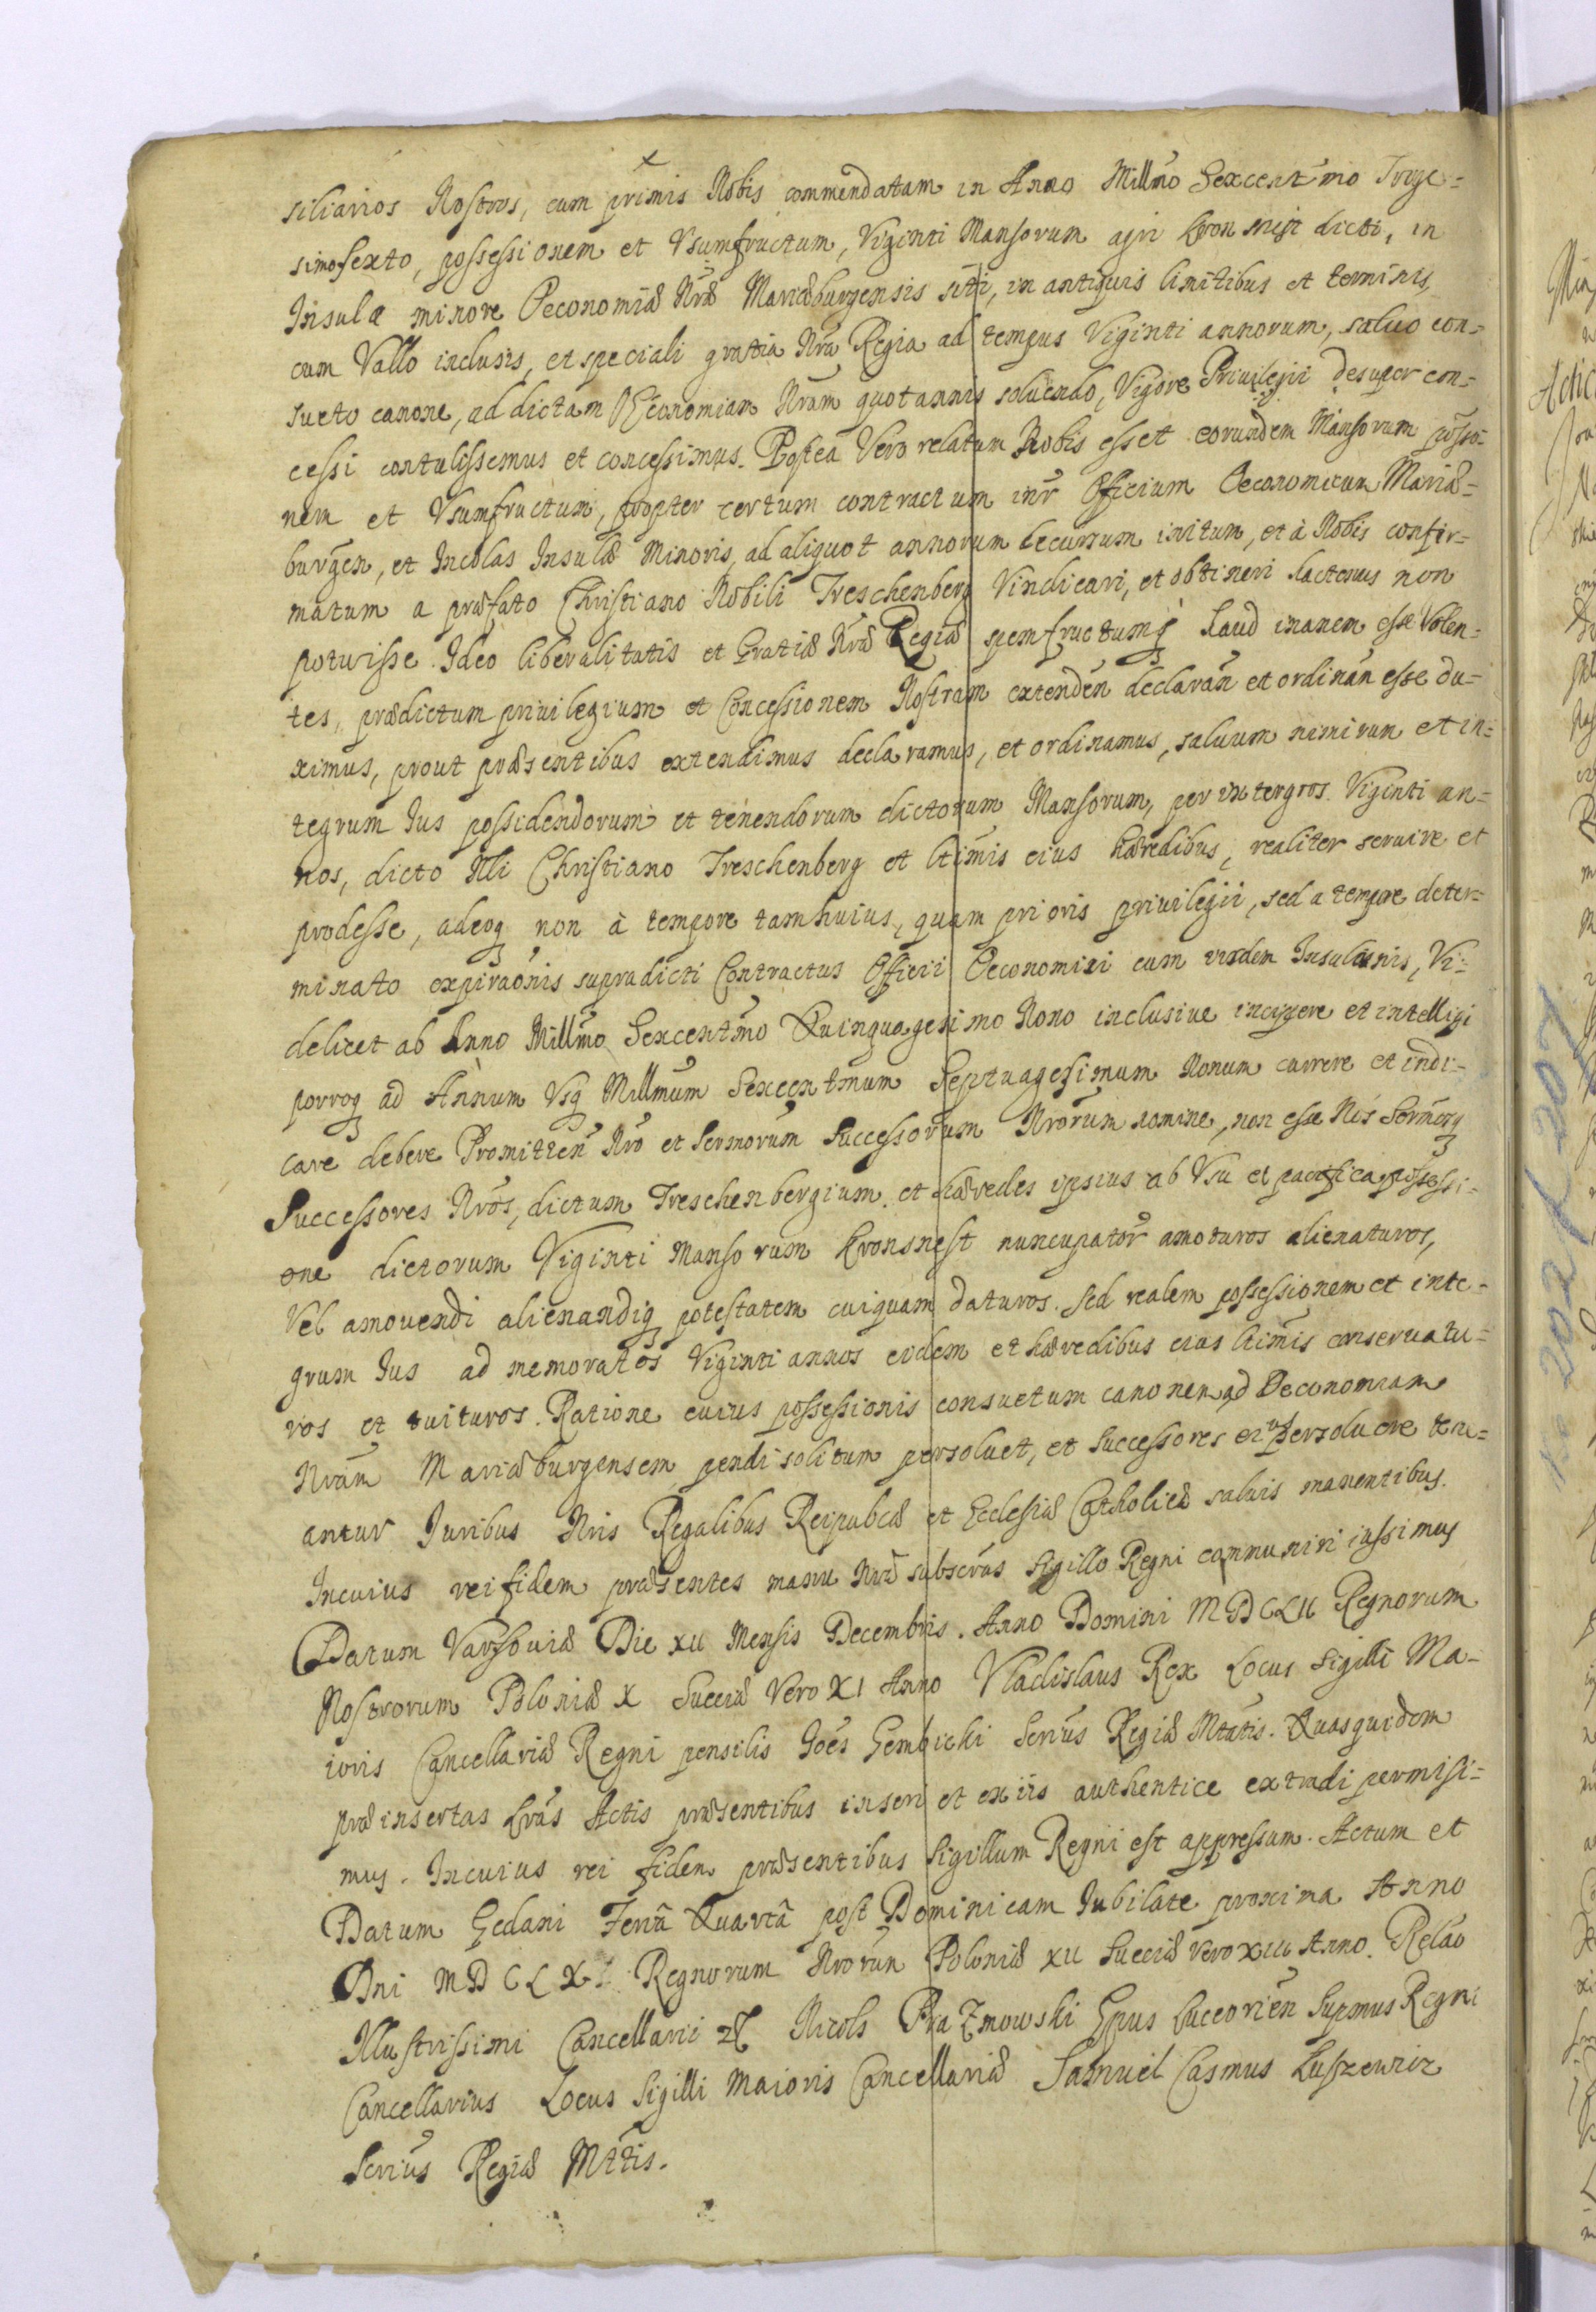 siliarios Nostros, cum primis Nobis commendatam in Anno Millmo Sexcentmo Trige=
simosexto, possessionem et Vsumfructum, Viginti Mansorum agri Kronsnist dicti, in
Insula minore Oeconomiæ Nræ Mariæburgensis siti, in antiquis limitibus et terminis,
cum Vallo inclusis, et speciali gratia Nra Regia ad tempus Viginti annorum, saluo con=
sueto canone, ad dictam Oeconomiam Nram quotannis soluendo, Vigore Priuilegii desuper con=
cessi contulissemus et concessimus. Postea Vero relatum Nobis esset eorundem Mansorum posso=
nem et Vsumfructum, propter certum contractum intr Officium Oeconomicum Mariæ=
burgen, et Incolas Insulæ Minoris, ad aliquot annorum decursum initum, et à Nobis confir=
matum a præfato Christiano Nobili Treschenberg Vindicari, et obtineri hactenus non
potuisse. Ideo liberalitatis et Gratiæ Nræ Regiæ spem fructumq haud inanem esse Volen=
tes, prædictum priuilegium et Concessionem Nostram extenden declaran et ordinan esse du=
ximus, prout præsentibus extendimus declaramus, et ordinamus, saluum nimirum et in=
tegrum Jus possidendorum et tenendorum dictorum Mansorum, per intergros Viginti an=
nos, dicto Nli Christiano Treschenberg et ltimis eius hæredibus, realiter seruire et
prodesse, adeoq non à tempore tam huius, quam prioris priuilegii, sed a tempore deter=
minato expiraonis supradicti Contractus Officii Oeconomici cum iisdem Insulanis, Vi=
delicet ab Anno Millmo Sexcentmo Quinquagesimo Nono inclusiue incipere et intelligi
porroq ad Annum Vsq Millmum Sexcentmum Septuagesimum Nonum currere et indi=
care debere Promitten Nro et Sermorum Successorum Nrorum nomine, non esse Nos Sermosq
Successores Nros, dictum Treschenbergium et hæredes ipsius ab Vsu et pacifica possessi=
one dictorum Viginti Mansorum Kronsnest nuncupator amoturos alienaturos,
Vel amouendi alienandiq potestatem cuiquam daturos. Sed realem possessionem et inte=
grum Jus ad memoratos Viginti annos eidem et hæredibus eius ltimis conseruatu=
ros et tuituros. Ratione cuius possessionis consuetum canonem ad Oeconomiam
Nram Mariæburgensem pendi solitum persoluet, et Successores eius persoluere tene=
antur Juribus Nris Regalibus Reipublcæ et Ecclesiæ Catholicæ saluis manentibus.
Incuius rei fidem præsentes manu Nra subscras Sigillo Regni communiri iussimus
Datum Varsouiæ Die XII Mensis Decembris. Anno Domini MDCLII Regnorum
Nostrorum Poloniæ X Sueciæ Vero XI Anno Vladislaus Rex Locus Sigilli Ma=
ioris Cancellariæ Regni pensilis Joes Gembicki Serius Regiæ Mtatis. Quasquidem
præinsertas Lras Actis præsentibus inseri et ex iis authentice extradi permisi=
mus. Incuius rei fidem præsentibus Sigillum Regni est appressum. Actum et
Datum Gedani Feria Quarta post Dominicam Jubilate proxima Anno
Dni MDCLXI Regnorum Nrorum Poloniæ XII Sueciæ vero XIII Anno. Relao
Illustrissimi Cancellarii Nicols Prazmowski Epus Luceorien Supmus Regni
Cancellarius Locus Sigilli Maioris Cancellariæ Samuel Casmus Kuszewicz
Serius Regiæ Mttis.